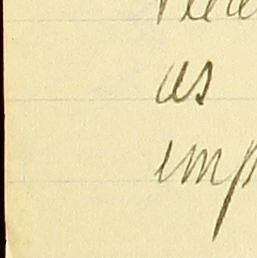 as
imp